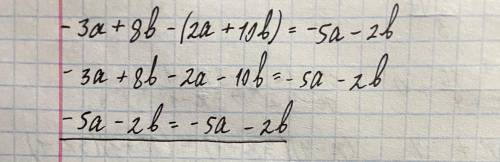 -3a+8b-(2a+10b)=-5a-2b
-3a+8b-2a-10b=-5a-2b
-5a-2b=-5a-2b